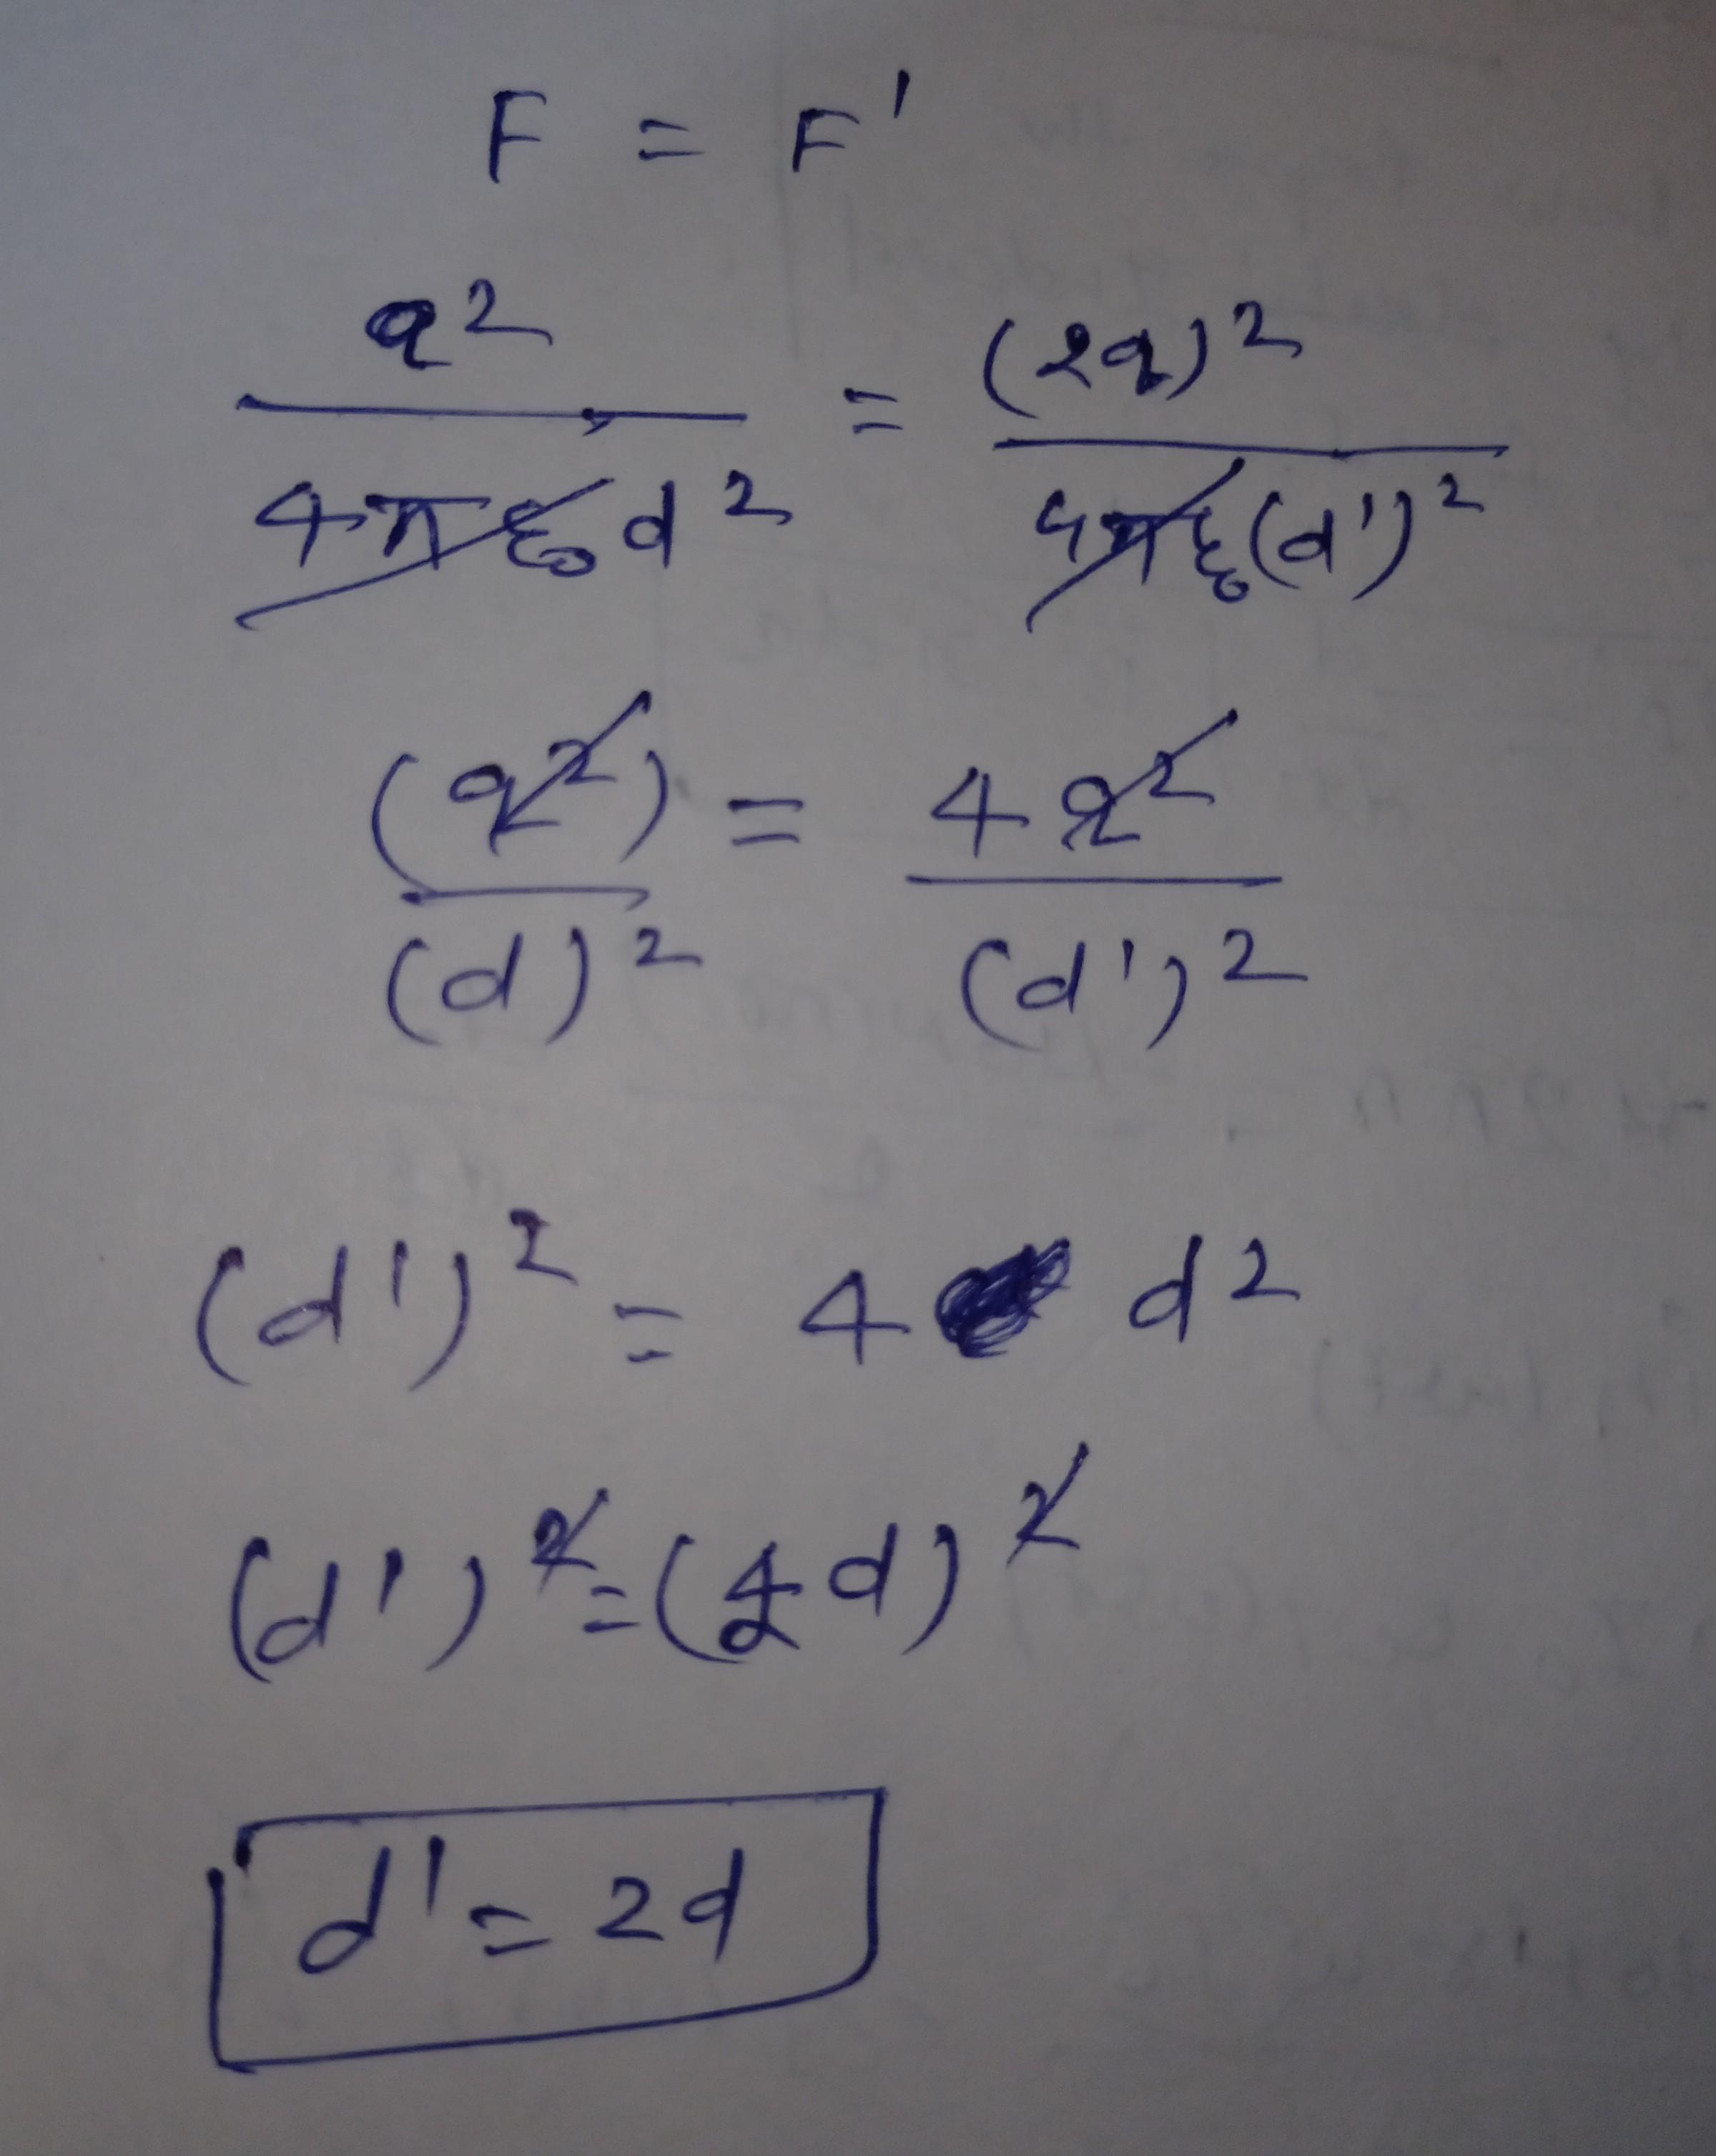 F = F'
q² / 4πε₀d² = (2q)² / 4πε₀(d')²
(q²) / (d)² = 4q² / (d')²
(d')² = 4 d²
(d')² = (2d)²
d' = 2d